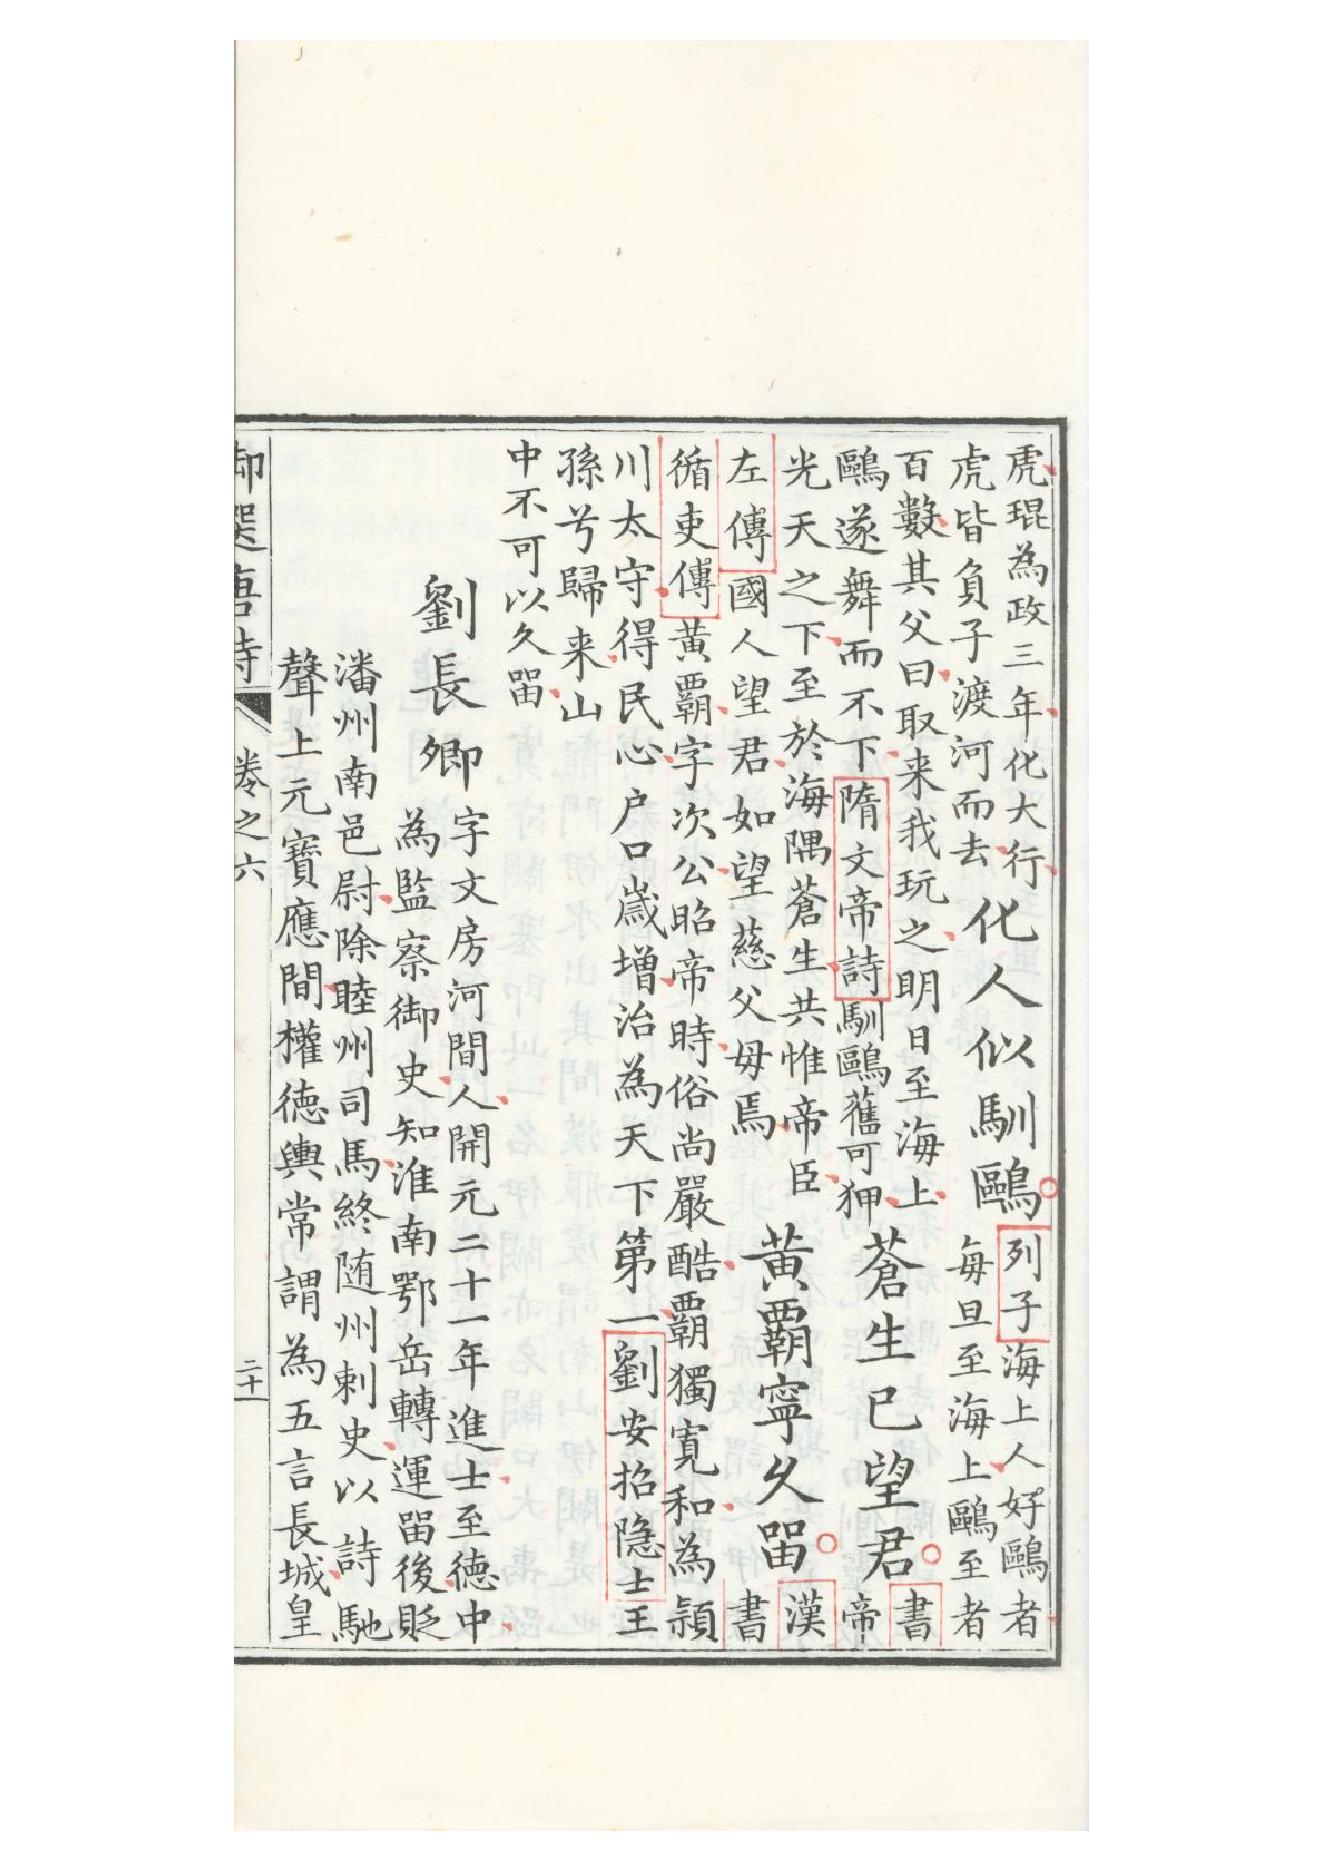 虎琨為政三年化大行
虎皆負子渡河而去
化人似馴鷗
列子海上人好鷗者
每旦至海上鷗至者
百數其父曰取来我玩之明日至海上
鷗遂舞而不下隋文帝詩馴鷗舊可狎
蒼生已望君
書
帝
光天之下至於海隅蒼生共惟帝臣
左傳國人望君如望慈父母焉
黃霸寧久畱
漢
書
循吏傳黃霸字次公昭帝時俗尚嚴酷霸獨寛和為潁
川太守得民心户口嵗增治為天下第一劉安招隠士王
孫兮歸来山
中不可以久畱
劉長卿
字文房河間人開元二十一年進士至德中
為監察御史知淮南鄂岳轉運畱後貶
潘州南邑尉除睦州司馬終随州刺史以詩馳
聲上元寶應間權德輿常謂為五言長城皇
御選唐詩
卷之六
二十